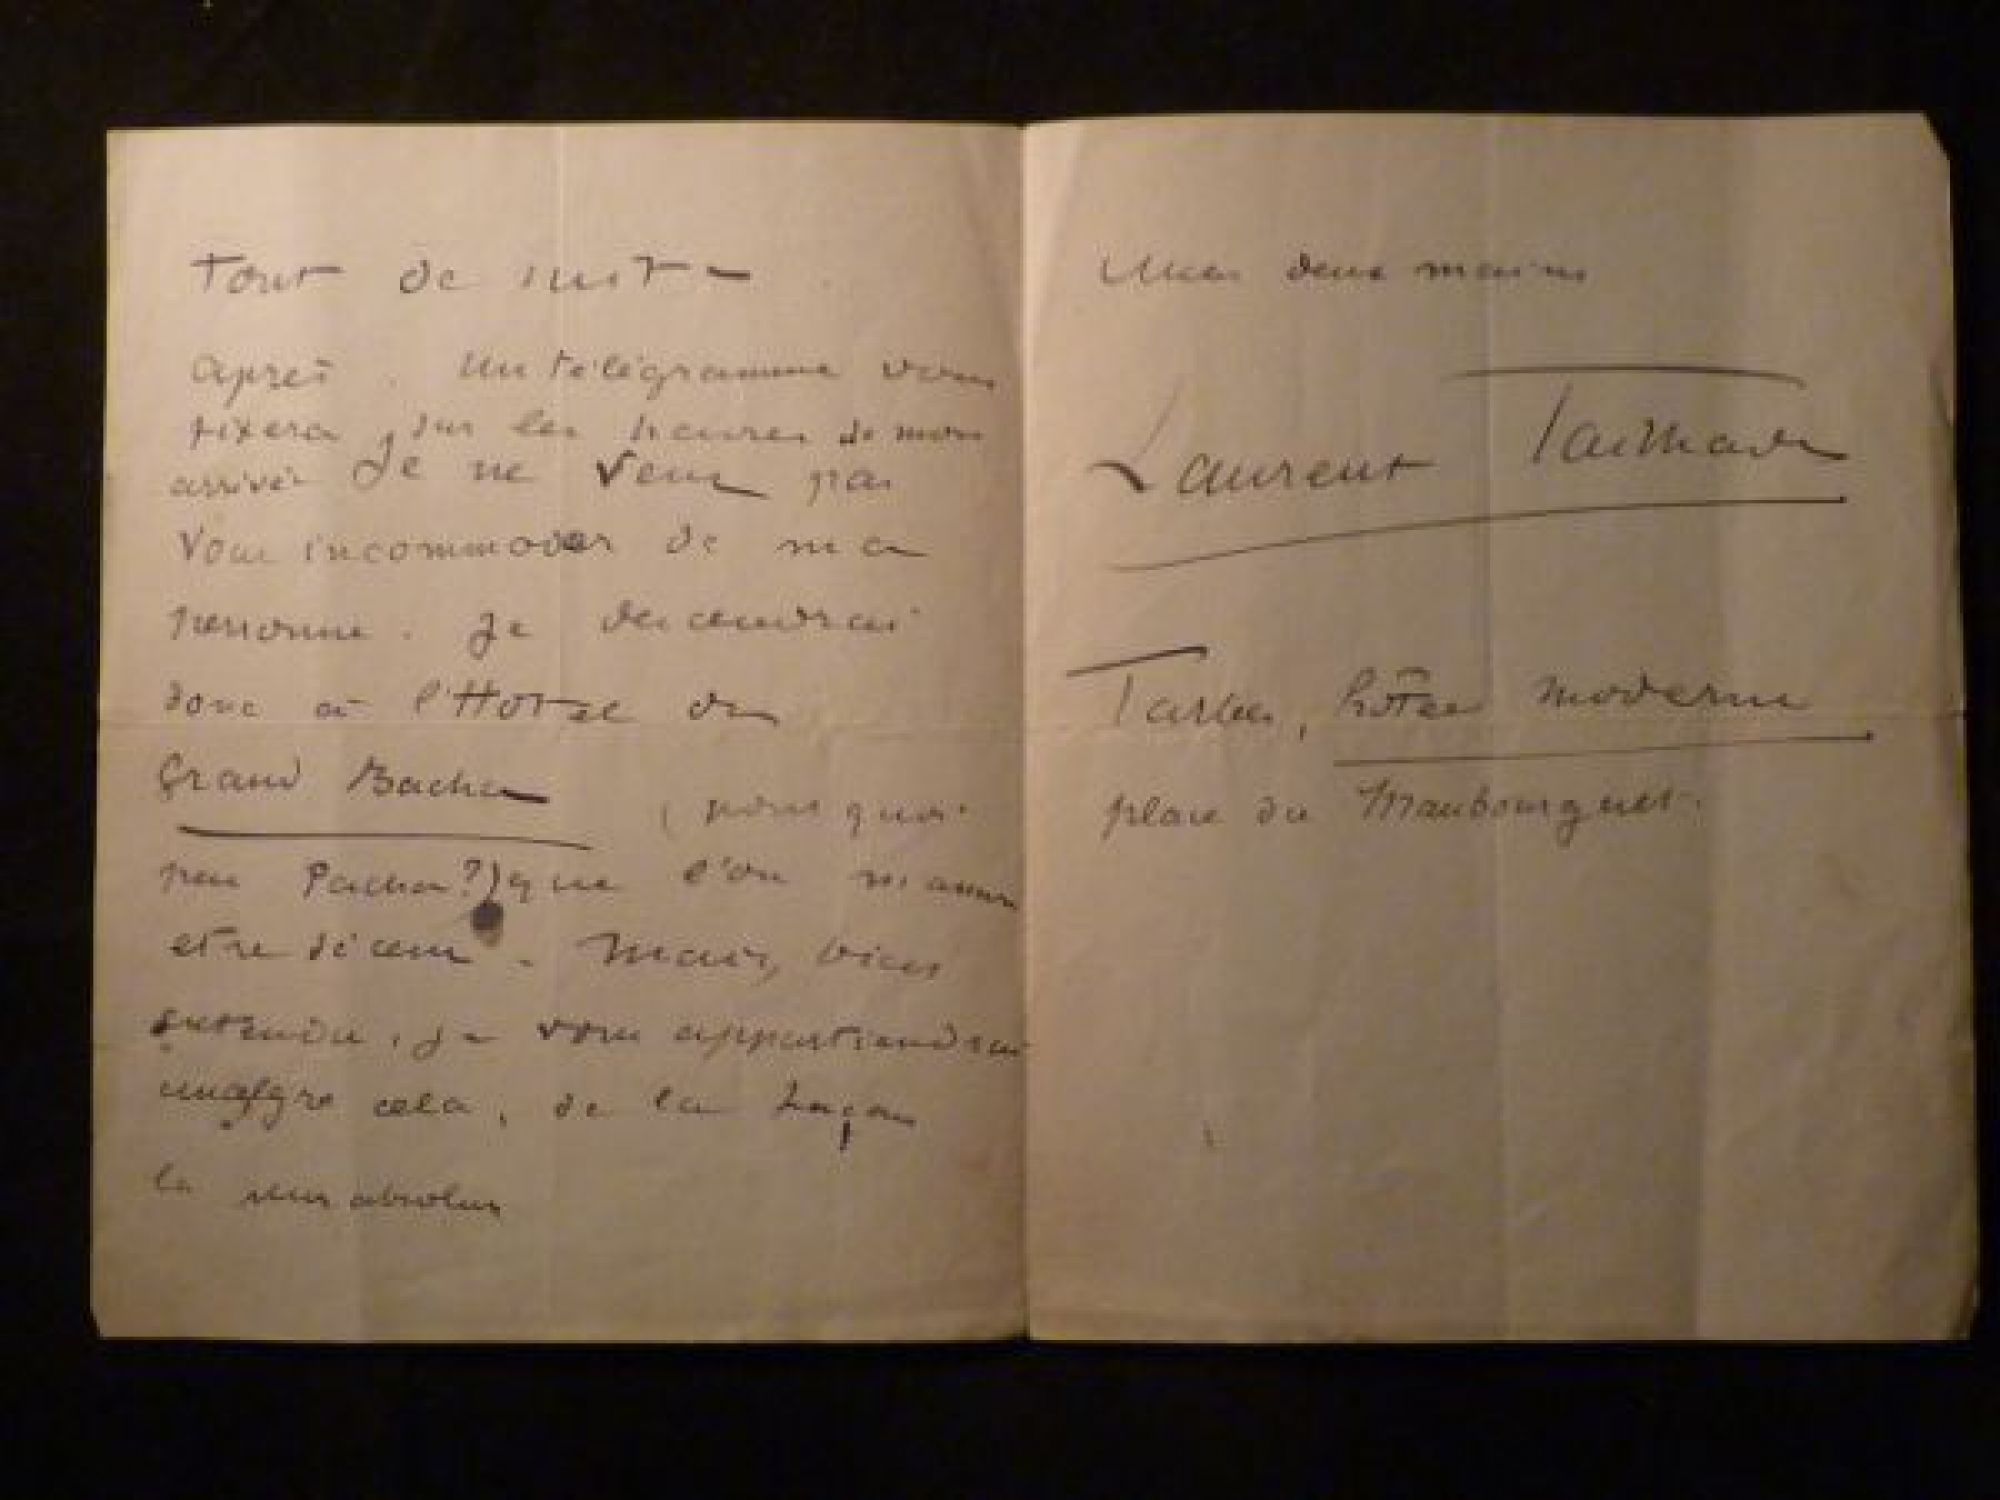 Tout de suite
après. Un télégramme vous
fixera sur les heures de mon
arrivée Je ne veux pas
vous incommoder de ma
personne. Je descendrai
donc à l'Hotel du
Grand Bacha (pourquoi
pas Pacha?) que l'on m'assure
etre décent. Mais, bien
entendu, je vous appartiendrai
malgré cela, de la façon
la plus absolue
Mes deux mains
Laurent Tailhade
Tarbes, hôtel moderne
place du Maubourguet.